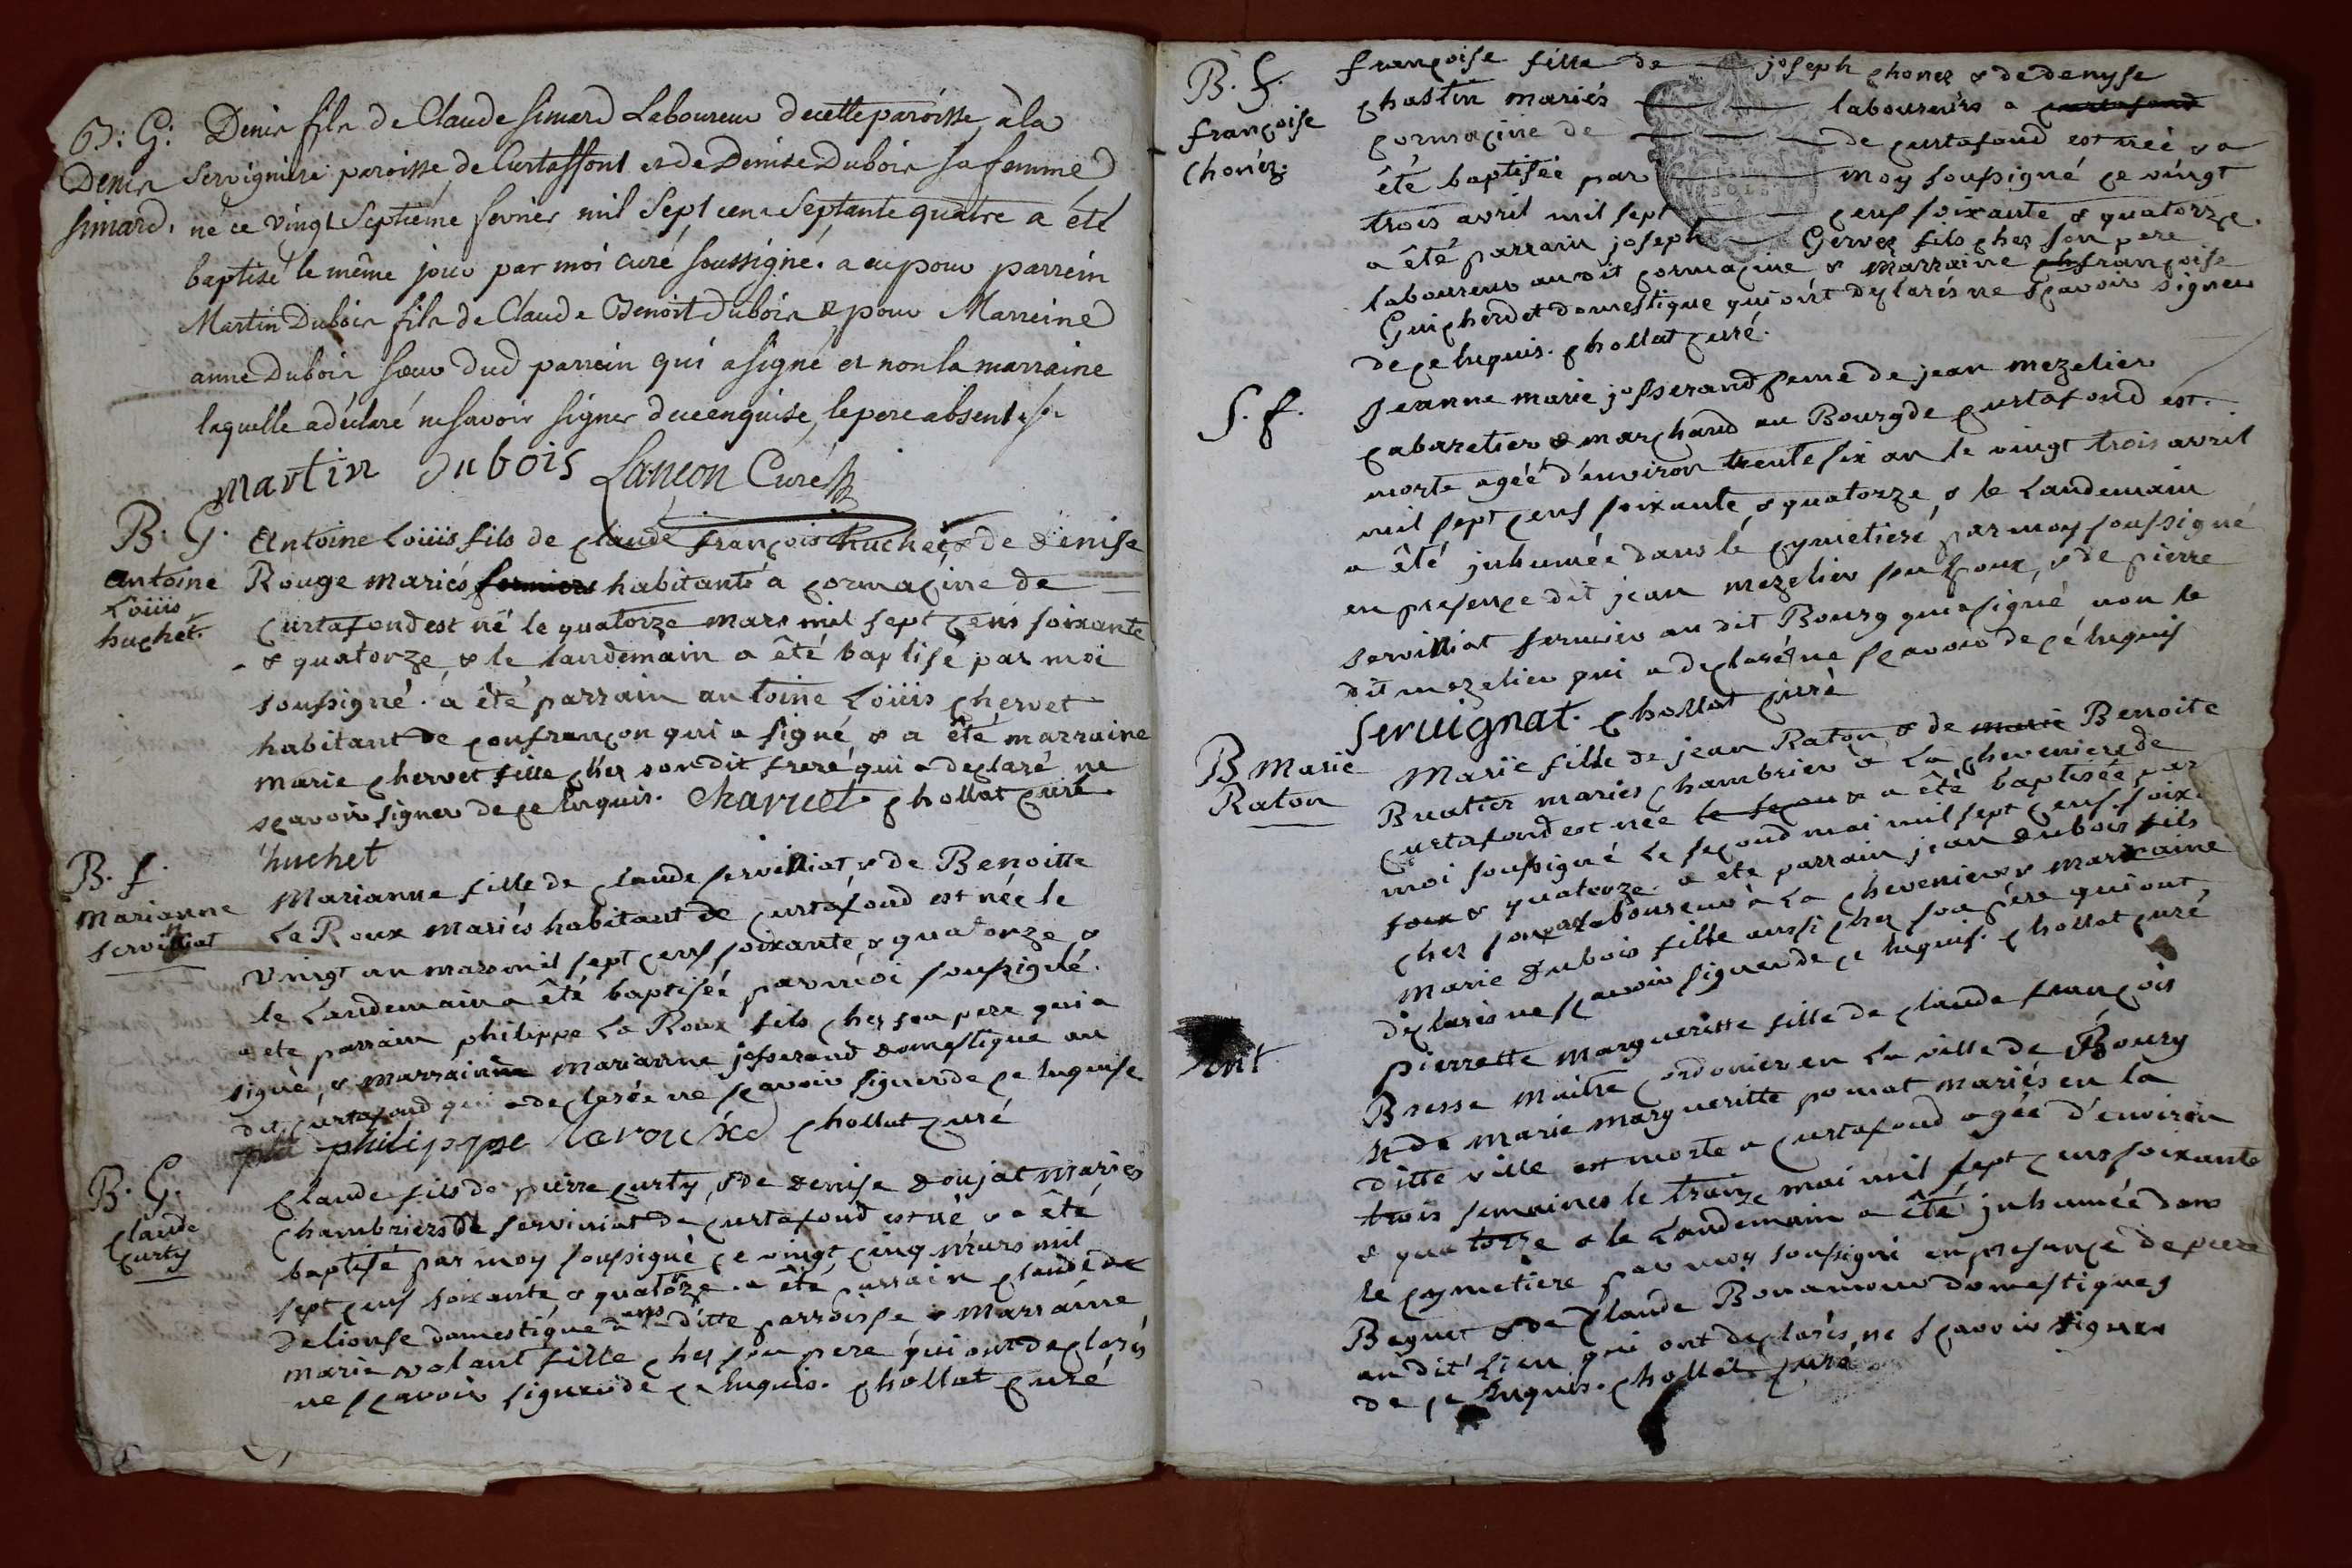 B: G: Denis fils de Claude Simard Laboureur de cette paroisse, à la
Denis Servignière paroisse de Curtaffont et de Denise Dubois sa femme
Simard. né ce vingt Septième fevrier mil Sept cens Septante quatre a été
baptisé le même jour par moi curé soussigné. a eu pour parrein
Martin Dubois fils de Claude Benoit Dubois & pour Marreine
anne Dubois sœur dud parrein qui a signé et non la marraine
laquelle a déclaré ne savoir signer de ce enquise, le pere absent
martin dubois Lançon Curé
B. G. Antoine Loüis fils de claude françois huchet & de denise
antoine Rouge mariés fermiers habitants a cormacine de
Loüis
huchet. Curtafond est né le quatorze mars mil sept cens soixante
& quatorze, & le landemain a êté baptisé par moi
soussigné. a êté parrain antoine Loüis chervet
habitant de confrançon qui a signé, & a êté marraine
marie chervet fille chez son dit frere qui a declaré ne
sçavoir signer de ce enquis. Charvet chollat curé
huchet
B. f. Marianne fille de claude servinat, & de Benoitte
Marianne La Roux mariés habitant de Curtafond est née le
servinat vingt un mars mil sept cens soixante & quatorze &
le Landemain a êté baptisée par moi soussigné.
a ete parrain philippe La Roux fils chez son pere qui a
signé, & marrainne Marianne josserand domestique au
dit curtafond qui a declarée ne sçavoir signer de ce enquise
philippe laroux chollat curé
B. G. Claude fils de pierre curty, & de denise doujat mariés
claude chambriers de servinat de curtafond est né & a êté
curty baptisé par moy soussigné ce vingt cinq mars mil
sept cens soixante & quatorze. a êté parrain claude de
Deliouse domestique dans la ditte parroisse & marraine
marie volant fille chez son pere qui ont declarés
ne sçavoir signer de ce enquis. chollat curé
B. f. françoise fille de joseph chonez & de denyse
françoise chastin mariés laboureurs a curtafond
chonéz. cormacine de de curtafond est née & a
êté baptisée par moy soussigné ce vingt
trois avril mil sept cens soixante & quatorze.
a êté parrain joseph Gervez fils chez son pere
laboureur au dit cormacine & marraine françoise
Guicherdet domestique qui ont declarés ne sçavoir signer
de ce enquis. chollat curé.
S. f. Jeanne marie josserand feme de jean mezelier
cabaretier & marchand au Bourg de curtafond est
morte agéé d'environ trente six an le vingt trois avril
mil sept cens soixante & quatorze, & le Landemain
a êté inhumée dans le cymetiere par moy soussigné
en presence dit jean mezelier son epoux, & de pierre
servinat fermier au dit Bourg qui a signé non le
dit mezelier qui a declaré ne sçavoir de ce enquis
Servignat. chollat curé
B Marie Marie fille de jean Raton & de marie Benoite
Raton Buatier mariés chambrier a La cheveniere de
curtafond est née a êté baptisée par
moi soussigné le second mai mil sept cens soix.
soix & quatorze. a ete parrain jean dubois fils
chez son pere laboureur à La cheveniere & marraine
marie dubois fille aussi chez son père qui ont
declarés ne sçavoir signer de ce enquis. chollat curé
Ent. pierrette marguerite fille de claude françois
Bresse maître cordonier en La ville de Bourg
& de marie margueritte pomat mariés en la
ditte ville est morte a curtafond agée d'environ
trois semaines le traize mai mil sept cens soixante
& quatorze & le Landemain a êté inhumée dans
le cymetiere par moy soussigné en presence de piere
Beguet & de Claude Bonamour domestiques
au dit Lieu qui ont declarés ne sçavoir signer
de ce enquis. chollat curé